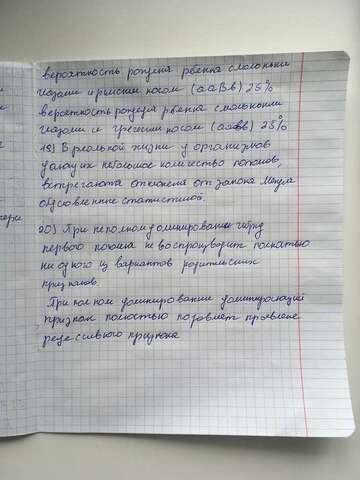 вероятность рождения рбенка с маленьки
глазами и римским носом (aaBb) 25%
вероятность рождедя рбенка с маленькими
глазами и греческим носом (aabb) 25%
19) В реальной жизни у организмов
дающих небольшое количество потомков,
встречаются отклонения от закона Менделя
обусловленные статистикой.
20) При неполном доминировании гибрид
первого поколения не воспроизводит полностью
ни одного из вариантов родительских
признаков.
При полном доминировании доминирующий
признак полностью подовляет проявление
рецессивного признака